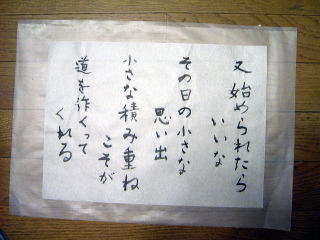 又始められたら
いいな
その日の小さな
思い出
小さな積み重ね
こそが
道を作くって
くれる